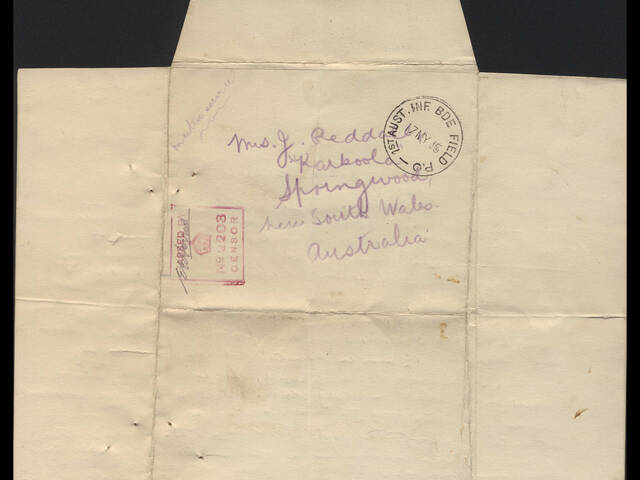 1ST AUST. INF. BDE FIELD P.O
17 MY 15
Mrs. J. Reddall
"Karkoola"
Springwood,
New South Wales.
Australia
PASSED BY
No 2203
CENSOR